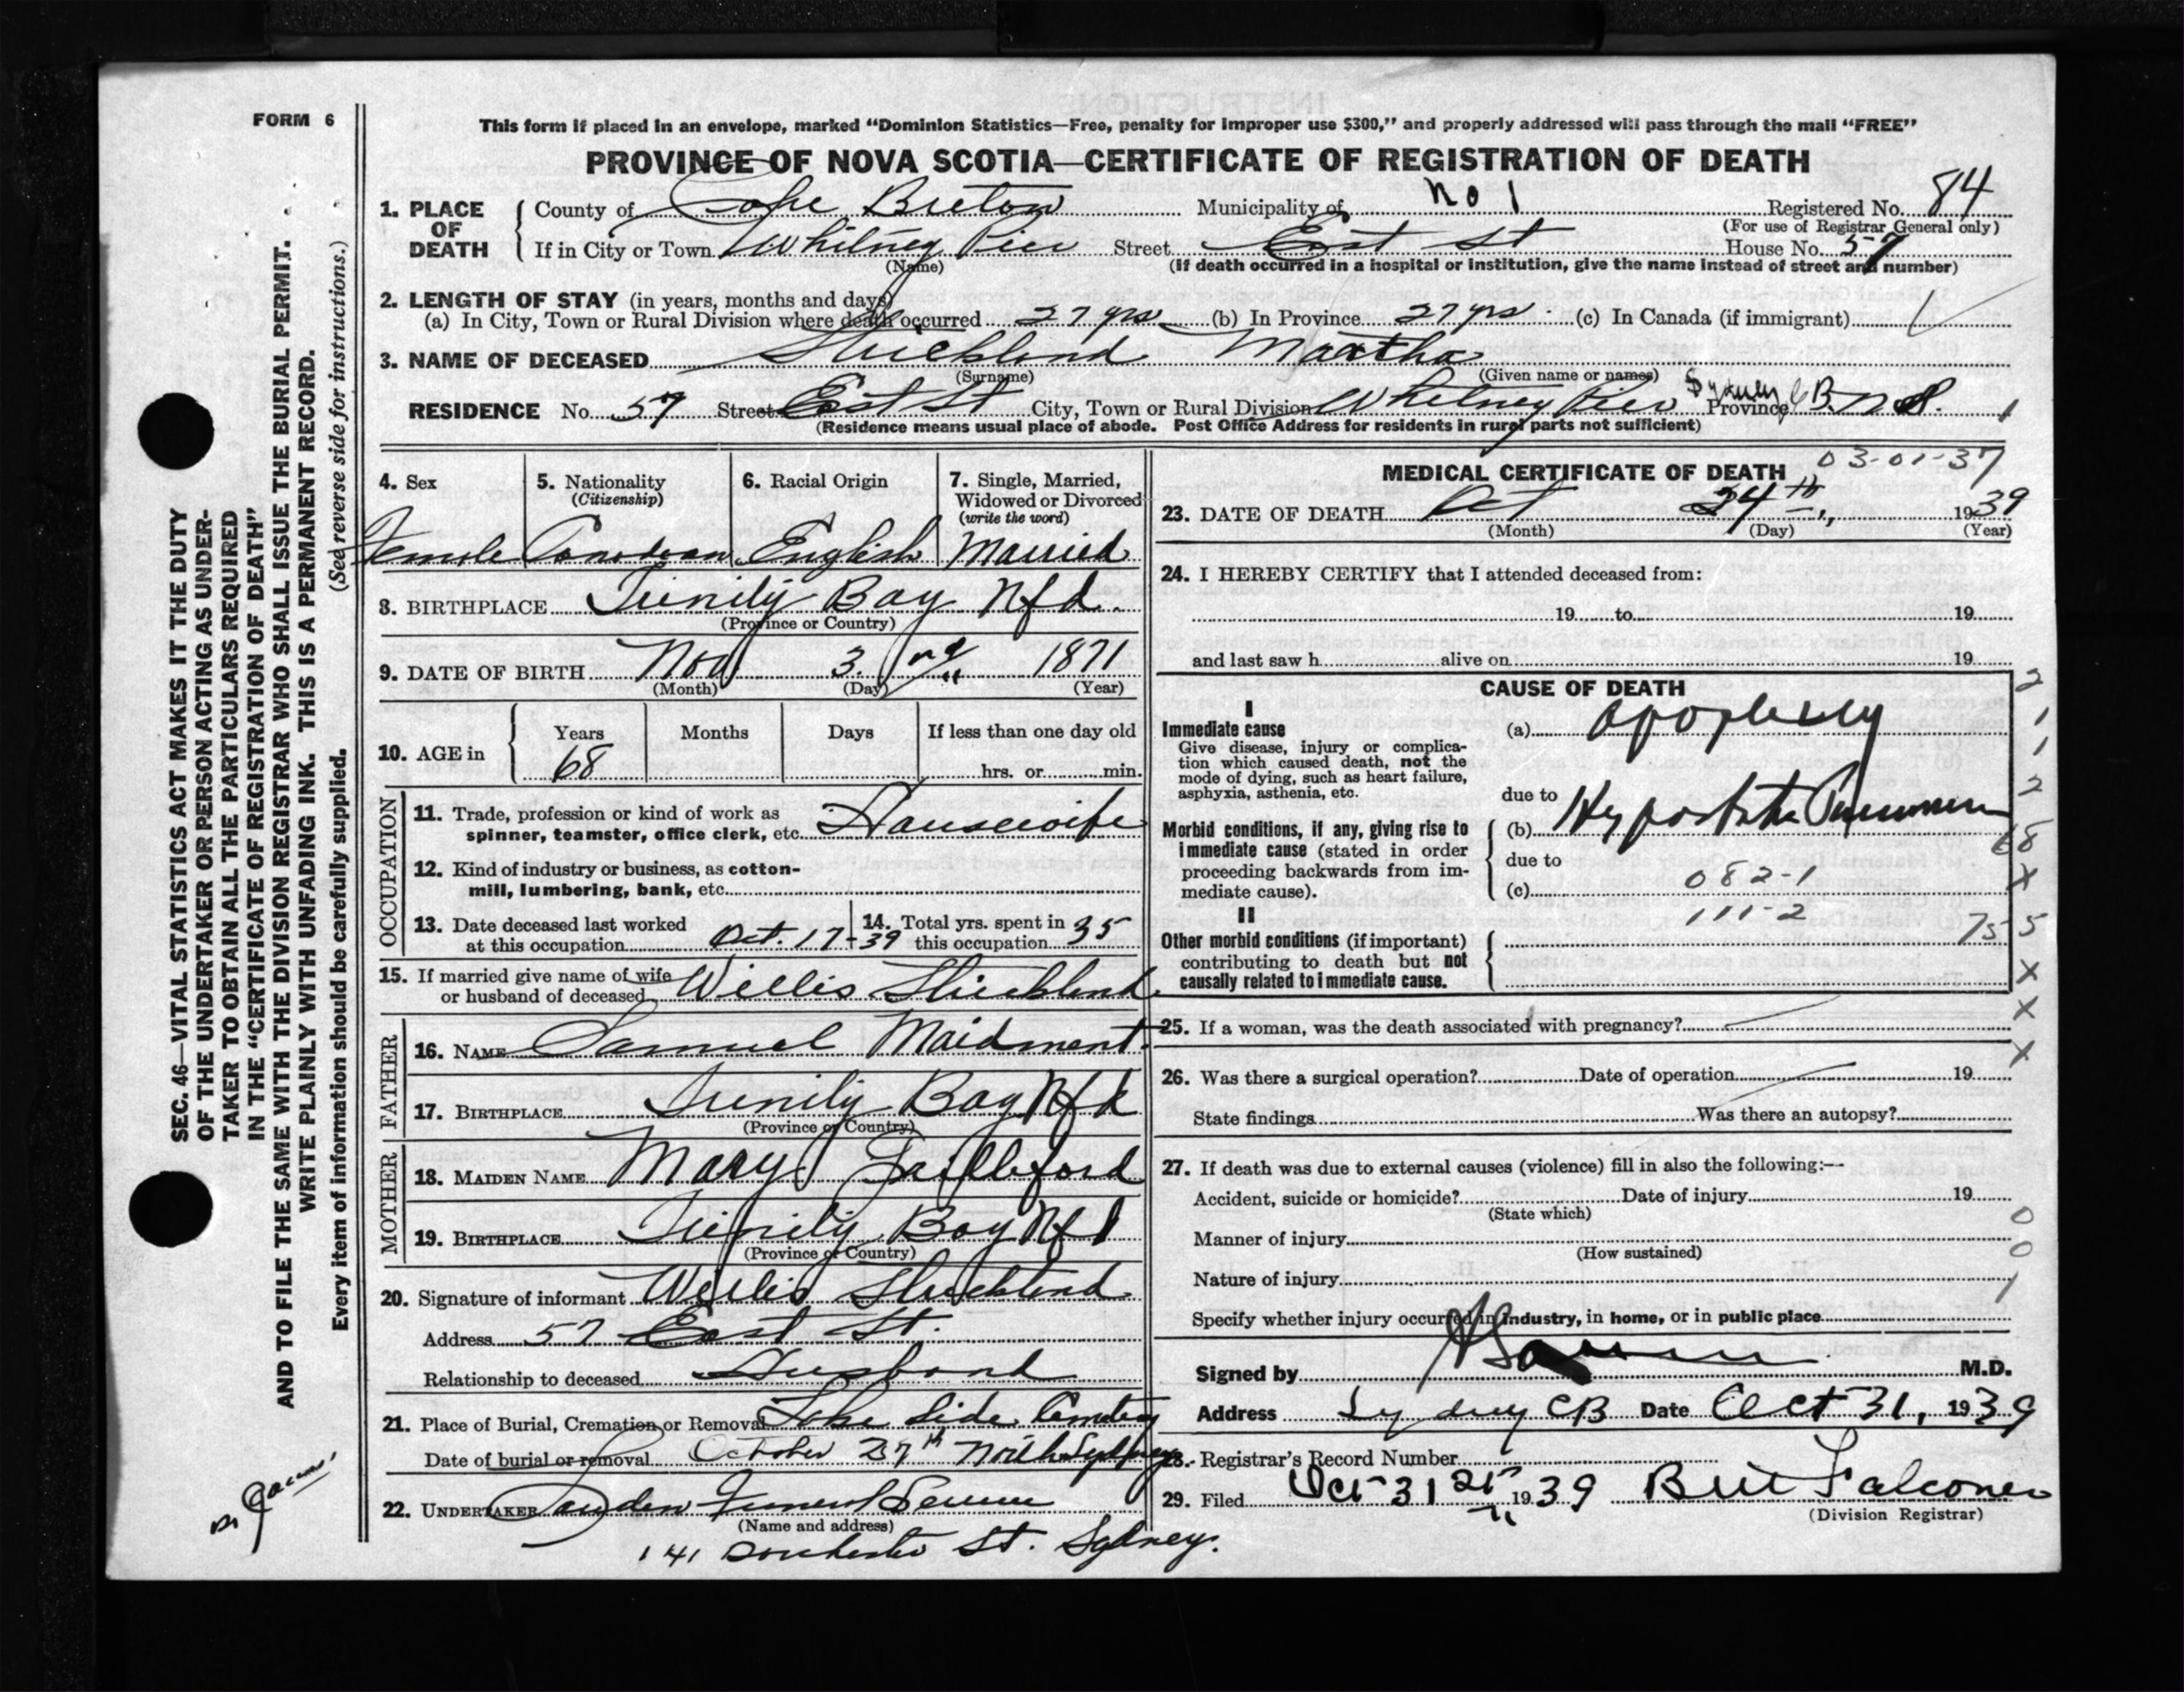 FORM 6
This form if placed in an envelope, marked “Dominion Statistics—Free, penalty for improper use $300,” and properly addressed will pass through the mail “FREE”
PROVINCE OF NOVA SCOTIA—CERTIFICATE OF REGISTRATION OF DEATH
1. PLACE OF DEATH County of Cape Breton Municipality of No 1 Registered No. 84
(For use of Registrar General only)
If in City or Town Whitney Pier Street East St House No. 57
(Name) (If death occurred in a hospital or institution, give the name instead of street and number)
2. LENGTH OF STAY (in years, months and days)
(a) In City, Town or Rural Division where death occurred 27 yrs (b) In Province 27 yrs (c) In Canada (if immigrant)
3. NAME OF DECEASED Strickland Martha
(Surname) (Given name or names)
RESIDENCE No. 57 Street East St City, Town or Rural Division Whitney Pier Sydney Province C B. N S. 1
(Residence means usual place of abode. Post Office Address for residents in rural parts not sufficient)
4. Sex 5. Nationality (Citizenship) 6. Racial Origin 7. Single, Married, Widowed or Divorced (write the word)
Female Canadian English Married
8. BIRTHPLACE Trinity Bay Nfd.
(Province or Country)
9. DATE OF BIRTH Nov 3. rd 1871
(Month) (Day) (Year)
10. AGE in Years Months Days If less than one day old
68 hrs. or min.
OCCUPATION
11. Trade, profession or kind of work as
spinner, teamster, office clerk, etc. Housewife
12. Kind of industry or business, as cotton-
mill, lumbering, bank, etc.
13. Date deceased last worked
at this occupation Oct. 17-39
14. Total yrs. spent in
this occupation 35
15. If married give name of wife
or husband of deceased Willis Strickland
FATHER
16. NAME Samuel Maidment
17. BIRTHPLACE Trinity Bay Nfd
(Province or Country)
MOTHER
18. MAIDEN NAME Mary
19. BIRTHPLACE Trinity Bay Nfd
(Province or Country)
20. Signature of informant Willis Strickland
Address 57 East St.
Relationship to deceased Husband
21. Place of Burial, Cremation or Removal Lake Side Cemetery
Date of burial or removal October 27th North Sydney
22. UNDERTAKER Funeral Service
(Name and address)
141 Dorchester St. Sydney.
MEDICAL CERTIFICATE OF DEATH 03-01-37
23. DATE OF DEATH Oct 24th 1939
(Month) (Day) (Year)
24. I HEREBY CERTIFY that I attended deceased from:
19 to 19
and last saw h alive on 19
CAUSE OF DEATH
I
Immediate cause (a) apoplexy
Give disease, injury or complica-
tion which caused death, not the
mode of dying, such as heart failure,
asphyxia, asthenia, etc.
due to
Morbid conditions, if any, giving rise to
immediate cause (stated in order
proceeding backwards from im-
mediate cause).
(b) Hypostatic Pneumonia
due to
(c) 082-1
111-2
II
Other morbid conditions (if important)
contributing to death but not
causally related to immediate cause.
2
1
1
2
68
X
75 5
X
X
X
25. If a woman, was the death associated with pregnancy?
26. Was there a surgical operation? Date of operation 19
State findings Was there an autopsy?
27. If death was due to external causes (violence) fill in also the following:—
Accident, suicide or homicide? Date of injury 19
(State which)
Manner of injury 0
(How sustained) 0
Nature of injury 1
Specify whether injury occurred in industry, in home, or in public place
Signed by M.D.
Address Sydney CB Date Oct 31, 1939
28. Registrar's Record Number
29. Filed Oct 31st 1939 Falconer
(Division Registrar)
SEC. 46—VITAL STATISTICS ACT MAKES IT THE DUTY
OF THE UNDERTAKER OR PERSON ACTING AS UNDER-
TAKER TO OBTAIN ALL THE PARTICULARS REQUIRED
IN THE “CERTIFICATE OF REGISTRATION OF DEATH”
AND TO FILE THE SAME WITH THE DIVISION REGISTRAR WHO SHALL ISSUE THE BURIAL PERMIT.
WRITE PLAINLY WITH UNFADING INK. THIS IS A PERMANENT RECORD.
Every item of information should be carefully supplied. (See reverse side for instructions.)